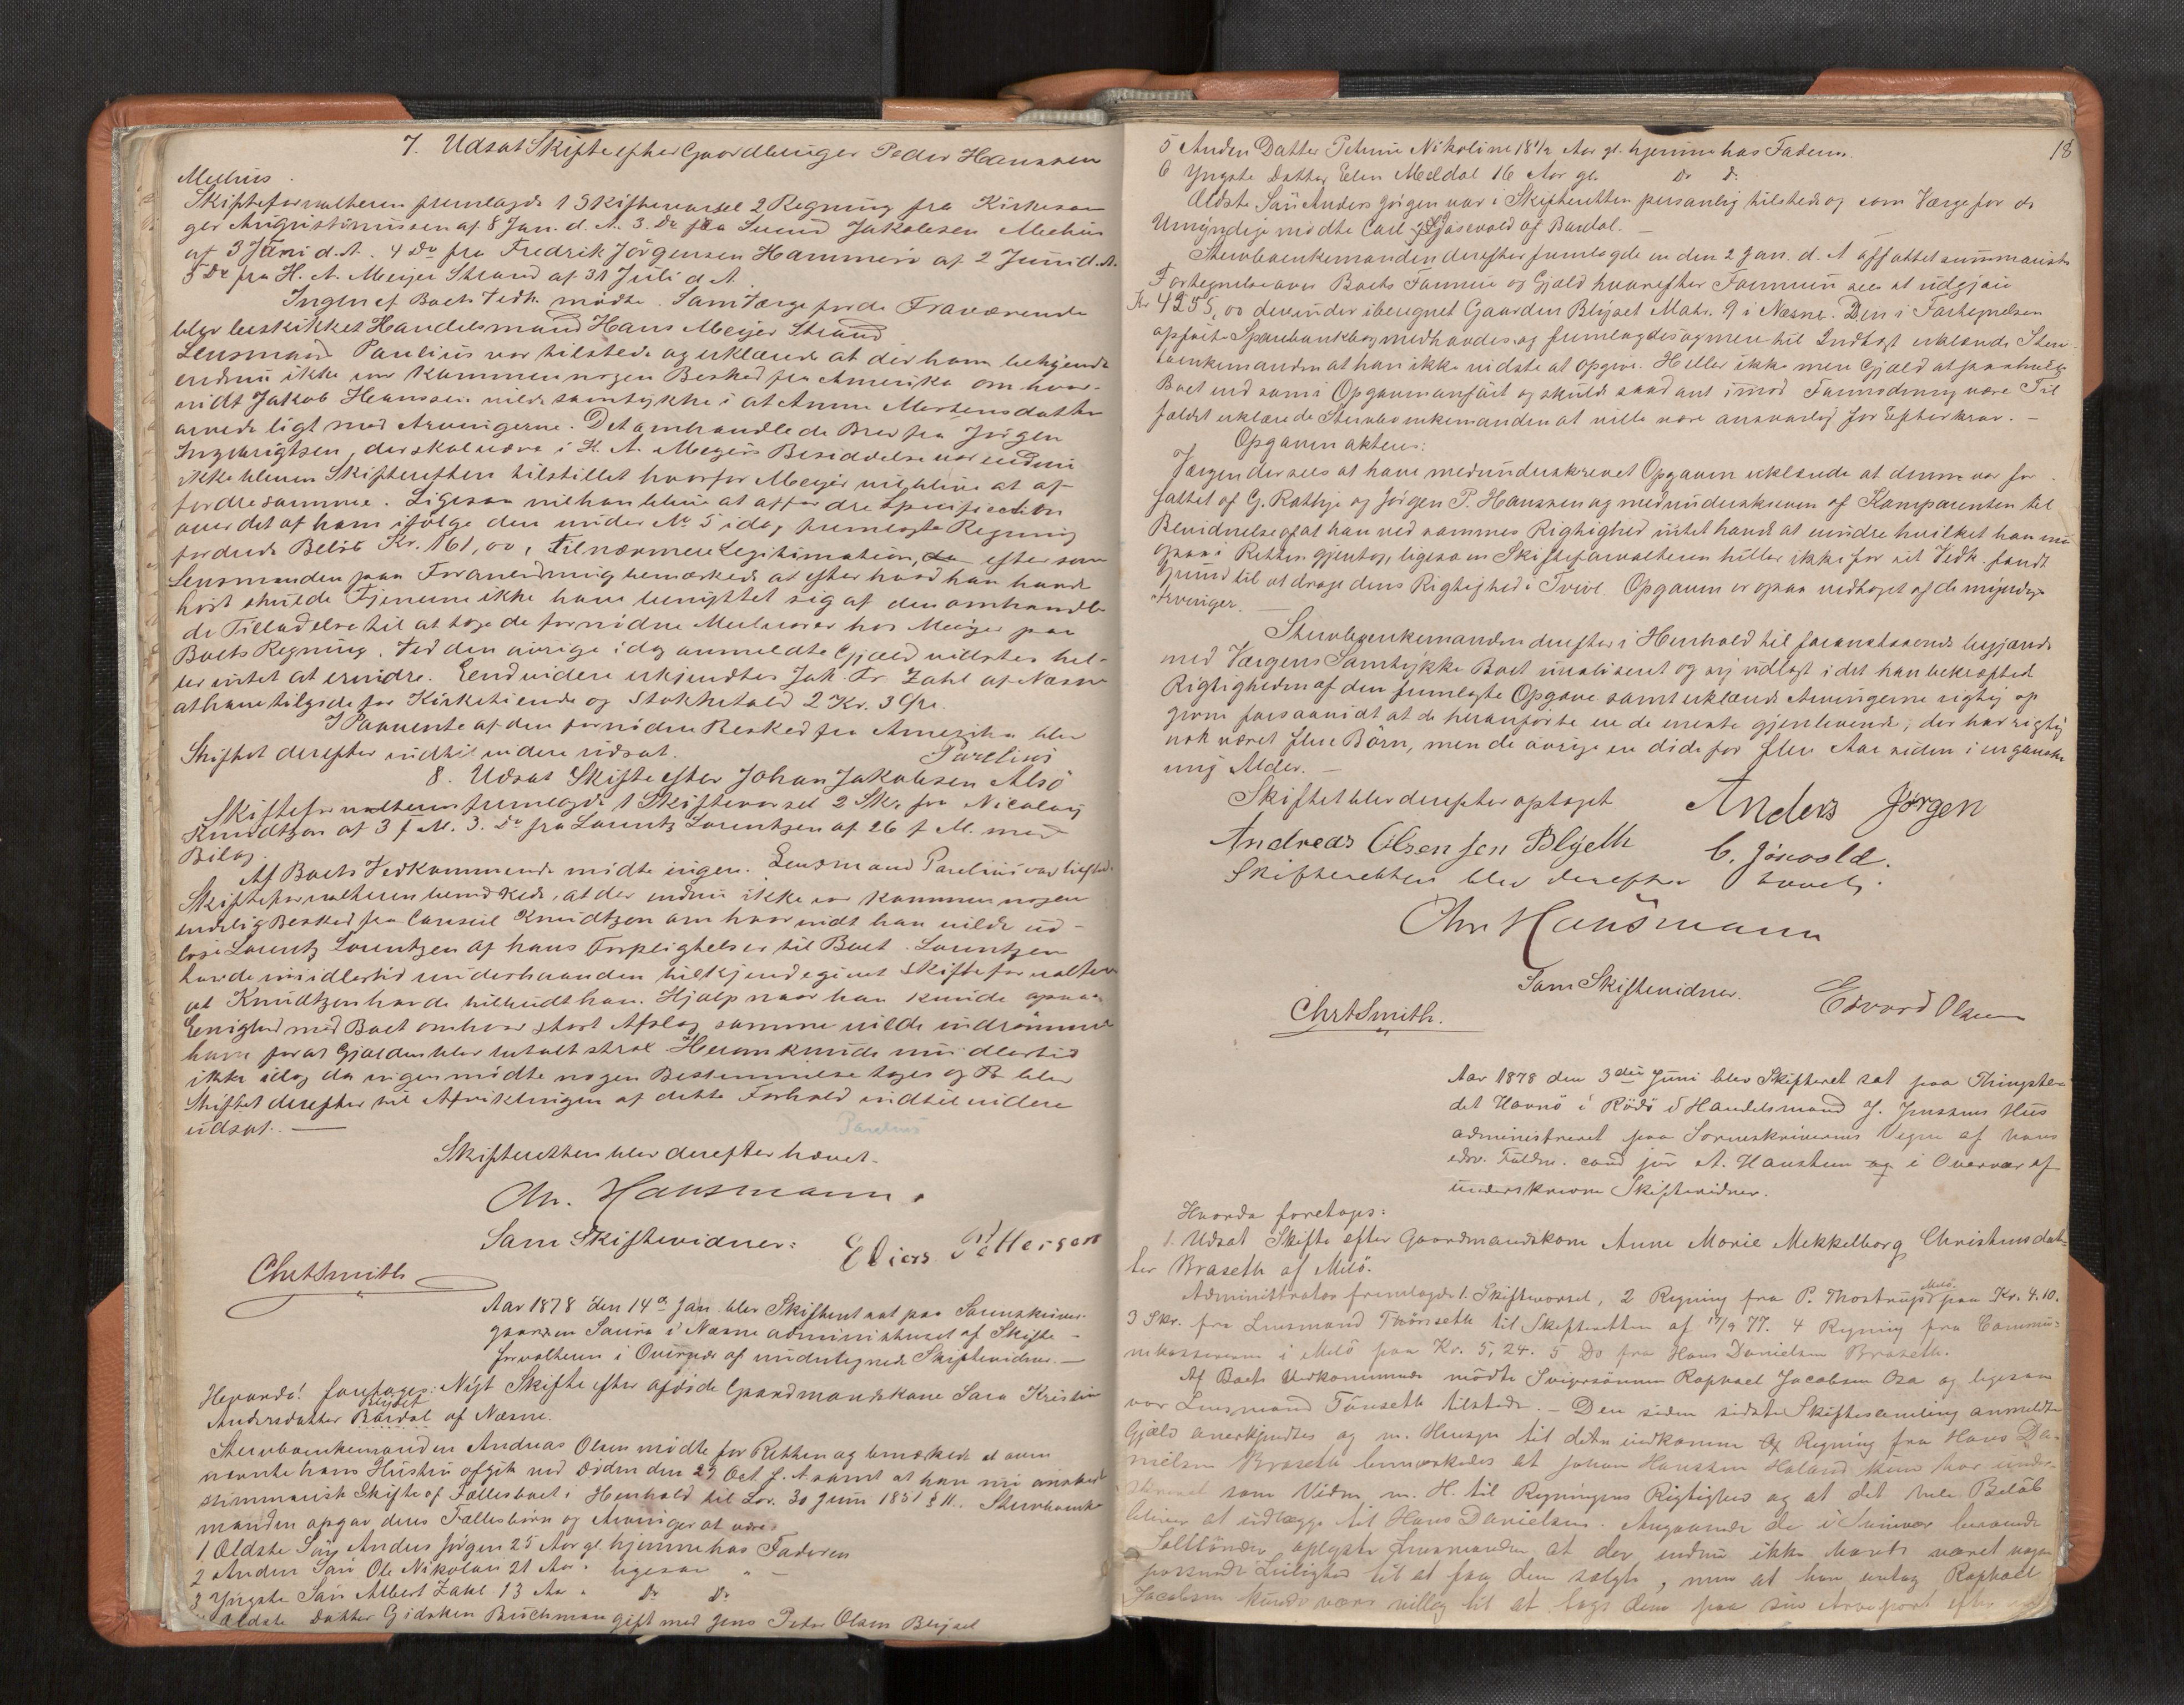 7. Udsat Skifte efter Gaardbruger Peder Hanssen
Meehus.
Skifteforvalteren fremlagde 1 Skiftevarsel 2 Regning fra Kirkesan
ger Augustinussen af 8 Jan. d. A. 3. Do fra Svend Jakobsen Meehus
af 3 Juni d. A. 4 Do fra Fredrik Jörgensen Hammerö af 2 Juni d. A.
5 Do fra H. A. Meijer Strand af 31 Juli d A.
Ingen af Boets Vedk. mödte. Som Værge for de Fraværende
blev beskikket Handelsmand Hans Meijer Strand
Lensmand Parelius var tilstede og erklærede at der ham bekjendt
endnu ikke var kommen nogen Besked fra Amerika om hvor-
vidt Jakob Hanssen vilde samtykke i at Anne Mortensdatter
arvede ligt med Arvingerne. Det omhandlede Brev fra Jörgen
Ingebrigtsen, der skal være i H. A. Meyers Besiddelse var endnu
ikke bleven Skifteretten tilstillet hvorfor Meyer vil blive at af-
fordre samme. Ligesaa vil han blive at affordre Specification
over det af ham ifölge den under No 5 idag fremlagte Regning
fordrede Belöb Kr. 161,00, til nærmere Legitimation, da eftersom
Lensmanden paa Foranledning bemærkede at efter hvad han havde
hört skulde Tjenerne ikke have benyttet sig af den omhandle
de Tilladelse til at tage de fornödne Madvarer hos Meijer paa
Boets Regning. Ved den övrige idag anmeldte Gjæld vidstes hel-
ler intet at erindre. Endvidere erkjendtes Jak. Fr. Zahl af Næsne
at have tilgode for Kirketiende og Stokketold 2 Kr. 3 Öre.
I Paavente af den fornödne Besked fra Amerika blev
Skiftet derefter indtil videre udsat. Parelius
8. Udsat Skifte efter Johan Jakobsen Alsö
Skifteforvalteren fremlagde 1 Skiftevarsel 2 Skr. fra Nicolay
Knudtzon af 3 f M. 3. Do fra Lorentz Lorentzen af 26 f M. med
Bilag.
Af Boets Vedkommende mödte ingen. Lensmand Parelius var tilstede.
Skifteforvalteren bemærkede, at der endnu ikke var kommen nogen
endelig Besked fra Consul Knudtzon om hvorvidt han vilde ud-
löse Lorentz Lorentzen af hans Forpligtelser til Boet. Lorentzen
havde imidlertid underhaanden tilkjendegivet Skifteforvalteren
at Knudtzon havde tilbudt ham Hjælp naar han kunde opnaa
Enighed med Boet om hvor stort Afslag samme vilde indrömme
ham for at Gjælden blev betalt strax Herom kunde imidlertid
ikke idag da ingen mödte nogen Bestemmelse tages og blev
Skiftet derefter til Afviklingen af dette Forhold indtil videre
udsat. — Parelius
Skifteretten blev derefter hævet.
Chr. Hansmann.
Som Skiftevidner: Elias Pettersen
Chr A Smith
Aar 1878 den 14de Jan. blev Skifteret sat paa Sorenskriver-
gaarden Saura i Næsne administreret af Skifte-
forvalteren i Overvær af undertegnede Skiftevidner. —
Hvorda! foretages: Nyt Skifte efter afdöde Gaardmandskone Sara Kristine
Blijset
Andersdatter Bardal af Næsne.
Stervboenkemanden Andreas Olsen mödte for Retten og bemærkede at oven
nævnte hans Hustru afgik ved Döden den 29 Oct f. A samt at han nu önskede
summarisk Skifte af Fællesboet i Henhold til Lov. 30 Juni 1851 § 11. Stervboenke
manden opgav deres Fællesbörn og Arvinger at være
1 Ældste Sön Anders Jörgen 25 Aar gl. hjemme hos Faderen
2 Anden Sön Ole Nikolai 21 Aar " ligesaa " —
3 Yngste Sön Albert Zahl 13 Aar " Do Do
Ældste Datter Gidsken Buchman gift med Jens Peter Olsen Blijset
18
5 Anden Datter Petrine Nikoline 18 1/2 Aar gl. hjemme hos Faderen.
6 Yngste Datter Elen Meldal 16 Aar gl. Do Do
Ældste Sön Anders Jörgen var i Skifteretten personlig tilstede og som Værge for de
Umyndige mödte Carl Jösevold af Bardal. —
Stervboenkemanden derefter fremlagde en den 2 Jan. d. A affattet summarisk
Fortegnelse over Boets Formue og Gjæld hvorefter Formuen sees at udgjöre
Kr 4255,00 derunder iberegnet Gaarden Blijset Matr. 9 i Næsne. Den i Fortegnelsen
opförte Sparebankbog medhavdes og fremlagdes og mere til Indtægt erklærede Sterv-
boenkemanden at han ikke vidste at opgive. Heller ikke mere Gjæld at paahvile
Boet end som i Opgaven anfört og skulde saadant imod Formodning være Til
fældet erklærede Stervboenkemanden at ville være ansvarlig for Efterkrav. —
Opgaven akteres:
Værgen der sees at have medunderskrevet Opgaven erklærede at denne var for
fattet af G. Rathje og Jörgen P. Hanssen og medunderskreven af Komparenten til
Bevidnelse af at han ved sammes Rigtighed intet havde at erindre hvilket han nu
ogsaa i Retten gjentog, ligesom Skifteforvalteren heller ikke for sit Vedk. fandt
Grund til at drage dens Rigtighed i Tvivl. Opgaven er ogsaa vedtaget af de myndige
Arvinger. —
Stervboenkemanden derefter i Henhold til foranstaaende begjærede
med Værgens Samtykke Boet realiseret og sig udlagt idet han bekræftede
Rigtigheden af den fremlagte Opgave samt erklærede Arvingerne rigtig op
givne forsaavidt at de heranförte ere de eneste gjenlevende; der har rigtig
nok været flere Börn, men de övrige ere döde for flere Aar siden i en ganske
ung Alder. —
Skiftet blev derefter optaget Anders Jørgen
Andreas Olsen Blijseth C. Jösvold.
Skifteretten blev derefter hævet.
Chr Hansmann
Som Skiftevidner.
Chr A Smith. Edvard Olsen
Aar 1878 den 3die Juni blev Skifteret sat paa Thingste-
det Havnö i Rödö i Handelsmand J. Jenssens Hus
administreret paa Sorenskriverens Vegne af hans
edsv. Fuldm. cand jur A. Hansteen og i Overvær af
underskrevne Skiftevidner.
Hvorda foretoges:
1. Udsat Skifte efter Gaardmandskone Anne Marie Mekkelborg Christensdat-
ter Braseth af Melö.
Administrator fremlagde 1. Skiftevarsel, 2 Regning fra P. Thostrup Melö paa Kr. 4.10.
3 Skr. fra Lensmand Thönseth til Skifteretten af 17/9 77. 4 Regning fra Commu-
nekassereren i Melö paa Kr. 5,24. 5 Do fra Hans Danielsen Braseth.
Af Boets Vedkommende mödte Svigersönnen Raphael Jacobsen Osa og ligesaa
var Lensmand Tönseth tilstede. — Den siden sidste Skiftesamling anmeldte
Gjæld anerkjendtes og m. Hensyn til den indkomne Regning fra Hans Da-
nielsen Braseth bemærkedes at Johan Hanssen Holand kun har under-
skrevet som Vidne m. H. til Regningens Rigtighed og at det hele Belöb
bliver at udlægge til Hans Danielsen. Angaaende de i Svinvær beroende
Salttönder oplyste Lensmanden at der endnu ikke havde været nogen
passende Leilighed til at faa dem solgte, men at han antog Raphael
Jacobsen kunde være villig til at tage dem paa sin Arvepart efter